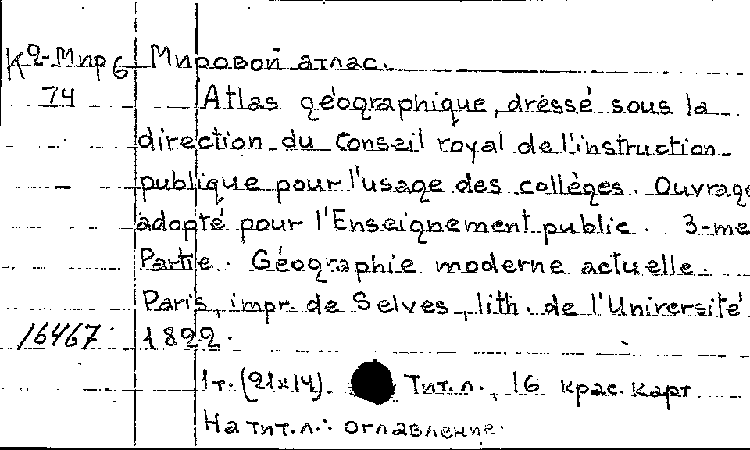 К2-Мир 6 Мировой атлас.
74 Atlas géographique, dréssé sous la
direction du Conseil royal de l'instruction
publique pour l'usage des collèges. Ouvrage
adopté pour l'Enseignement public. 3-me
Partie. Géographie moderne actuelle.
Paris, impr. de Selves, lith. de l'Université
16467 1822.
1 т. (21x14). Тит. л., 16 крас. карт.
На тит. л.: оглавление.